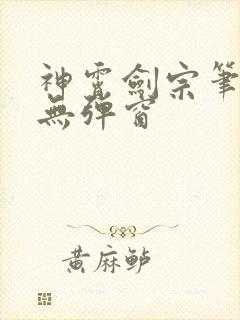 神霄劍宗筆
無彈窗
黃麻鲈